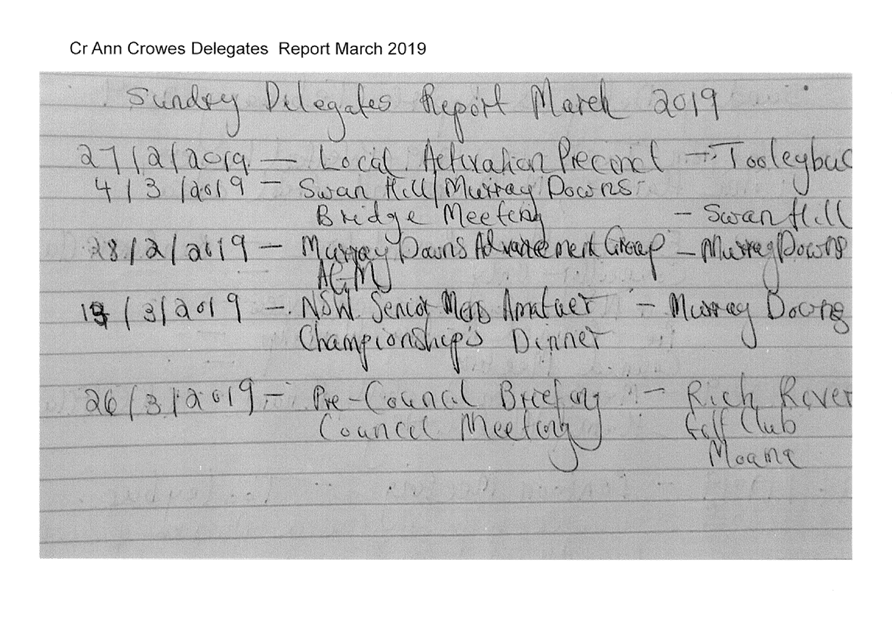 Cr Ann Crowes Delegates Report March 2019
Sundry Delegates Report March 2019
27/2/2019 — Local Activation Precinct → Tooleybuc
4/3/2019 — Swan Hill/Murray Downs
Bridge Meeting — Swan Hill
28/2/2019 — Murray Downs Advancement Group — Murray Downs
AGM
/3/2019 — NSW Senior Mens Amatuer — Murray Downs
Championships Dinner
26/3/2019 — Pre-Council Briefing — Rich River
Council Meeting Golf Club
Moama